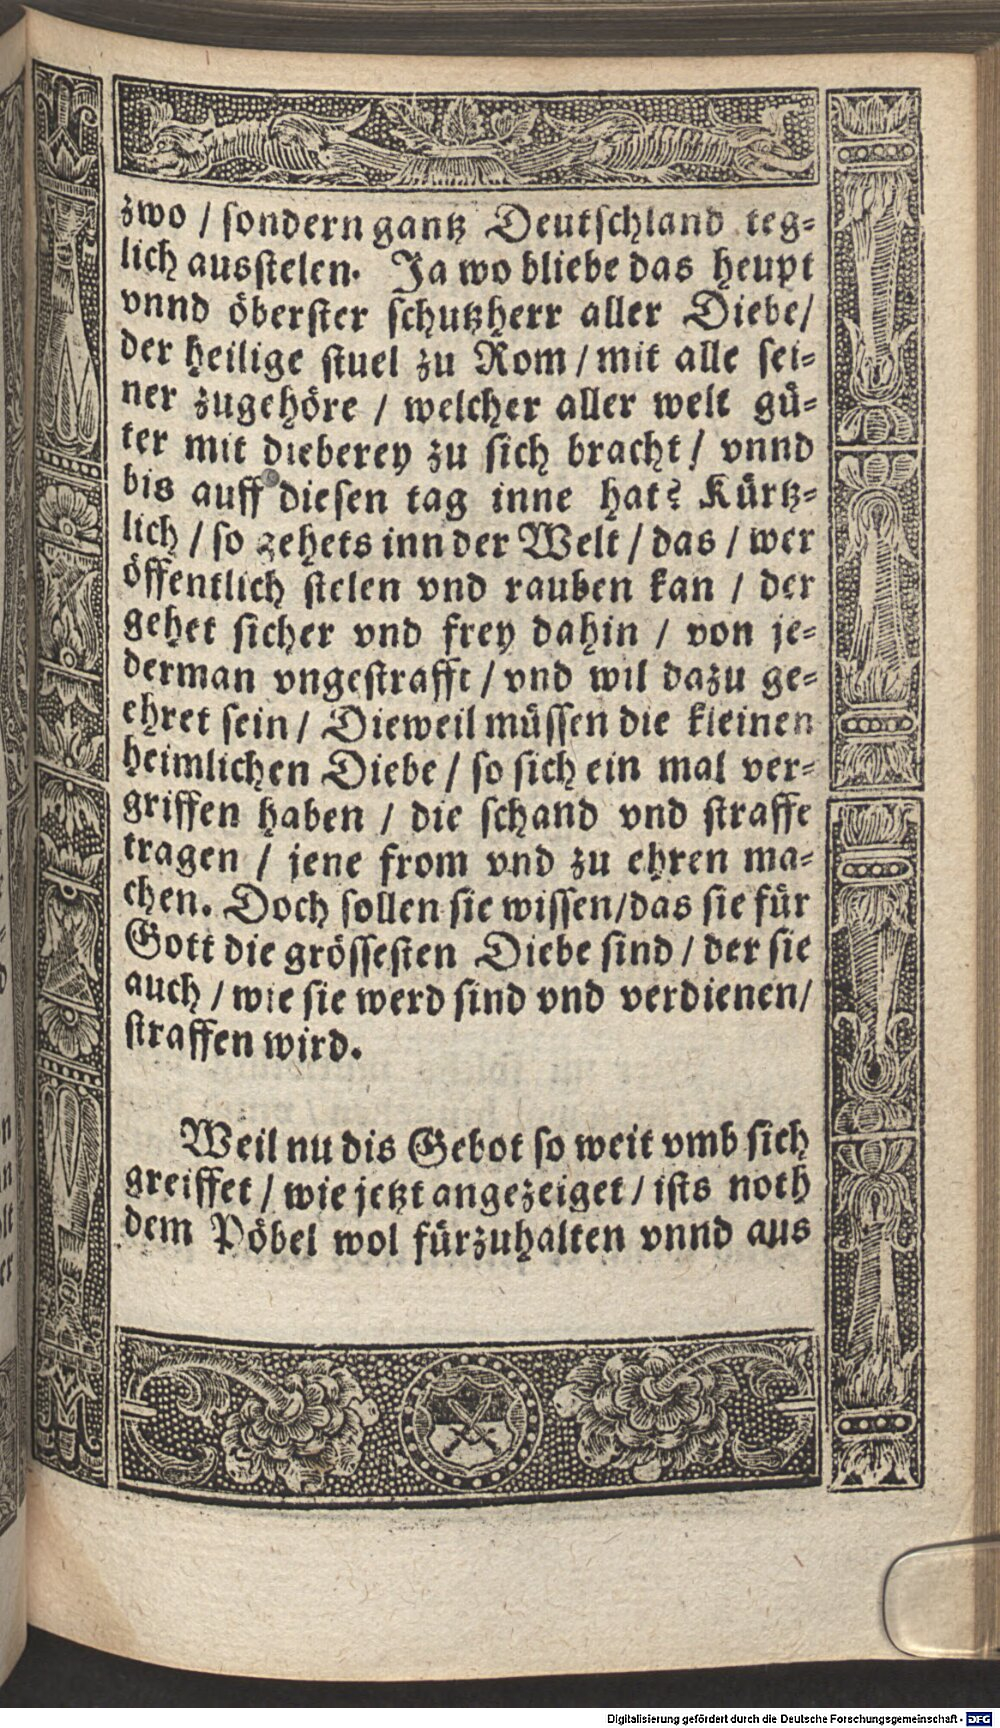 zwo / sondern gantz Deutschland teg⸗
lich ausstelen. Ja wo bliebe das heupt
vnnd öberster schutzherr aller Diebe/
der heilige stuel zu Rom / mit alle sei⸗
ner zugehöre / welcher aller welt gü⸗
ter mit dieberey zu sich bracht / vnnd
bis auff diesen tag inne hat? Kürtz⸗
lich / so gehets inn der Welt / das / wer
öffentlich stelen vnd rauben kan / der
gehet sicher vnd frey dahin / von je⸗
derman vngestrafft / vnd wil dazu ge⸗
ehret sein / Dieweil müssen die kleinen
heimlichen Diebe / so sich ein mal ver⸗
griffen haben / die schand vnd straffe
tragen / jene from vnd zu ehren ma⸗
chen. Doch sollen sie wissen/das sie für
Gott die grössesten Diebe sind / der sie
auch / wie sie werd sind vnd verdienen/
straffen wird.
Weil nu dis Gebot so weit vmb sich
greiffet / wie jetzt angezeiget / ists noth
dem Pöbel wol fürzuhalten vnnd aus
Digitalisierung gefördert durch die Deutsche Forschungsgemeinschaft - DFG